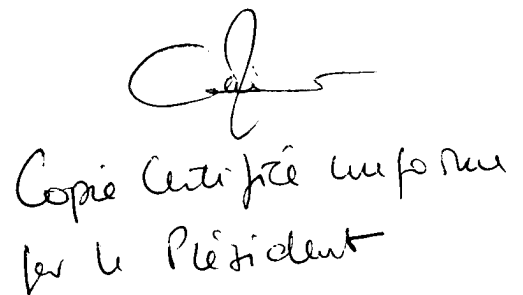 Copie Certifiée conforme
par le Président